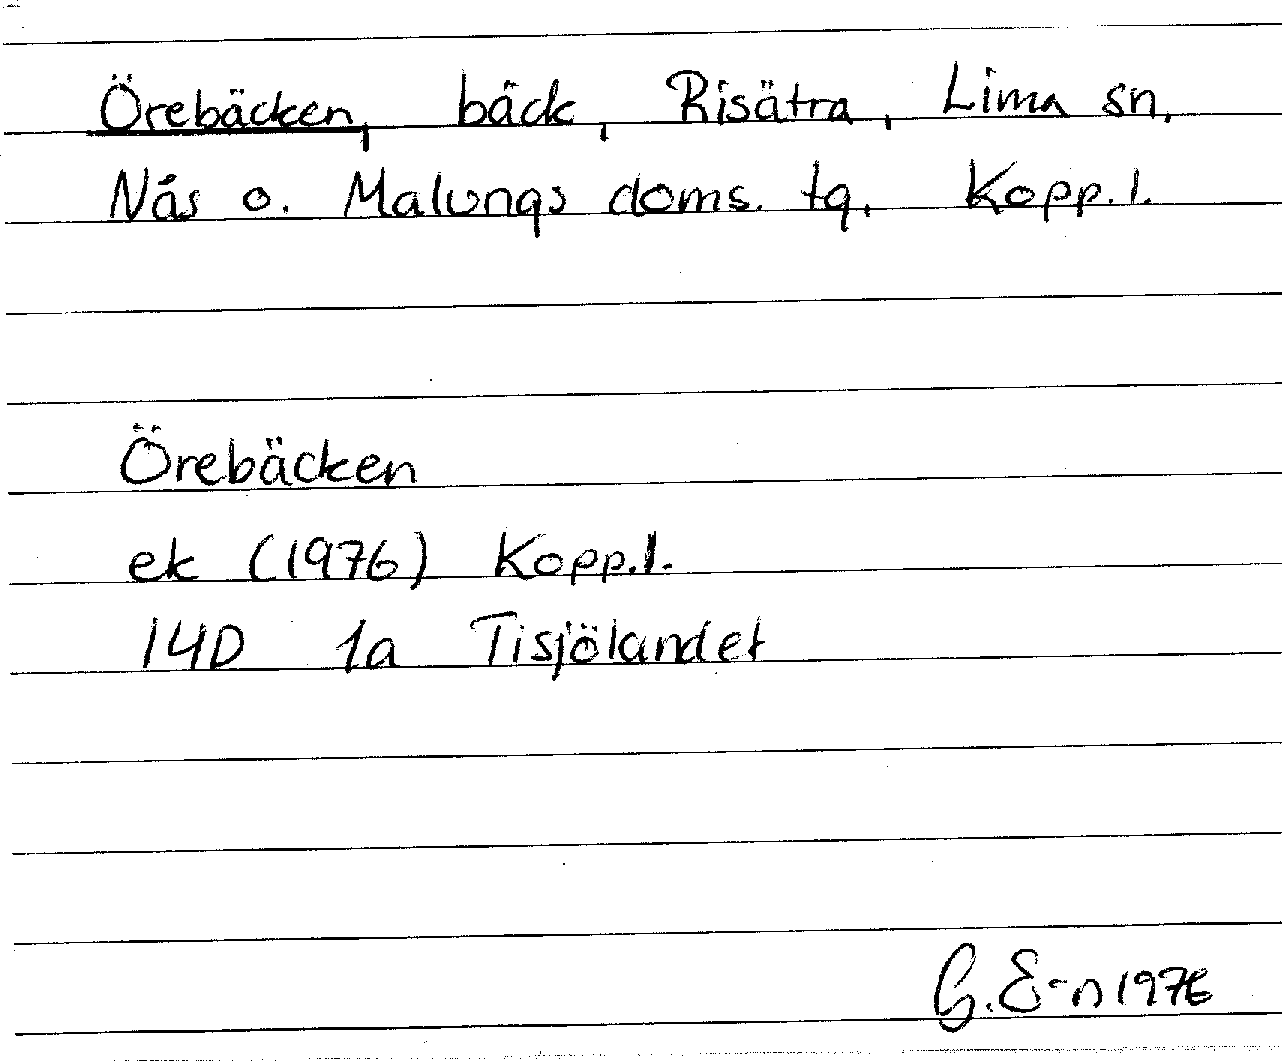 Örebäcken, bäck, Risätra, Lima sn,
Nås o. Malungs doms. tg, Kopp. l.
Örebäcken
ek (1976) Kopp.l.
14D 1a Tisjölandet
G. E-n 1976